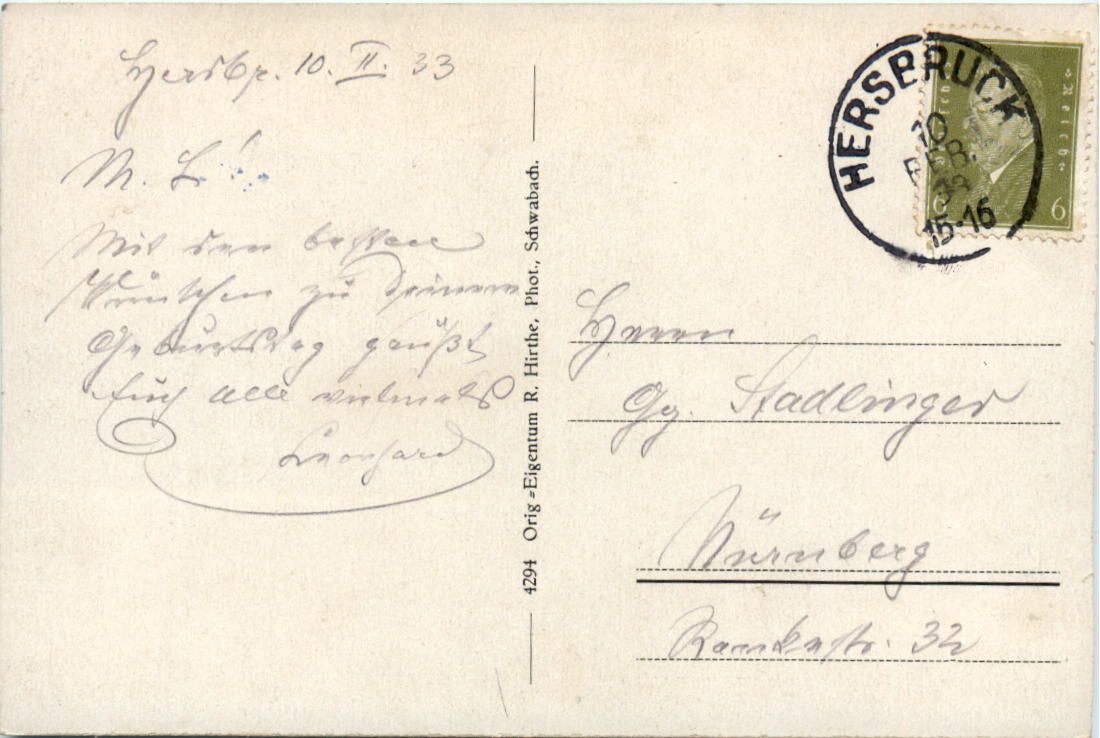 Hersbr. 10. II. 33
M. L.!
Mit den besten
Wünschen zu Deinem
Geburtstag grüßt
Euch alle vielmals
Leonhard
4294 Orig.=Eigentum R. Hirthe, Phot., Schwabach.
HERSBRUCK
10
FEB.
33
15-16
Reich
6
6
Herrn
Gg. Stadlinger
Nürnberg
32